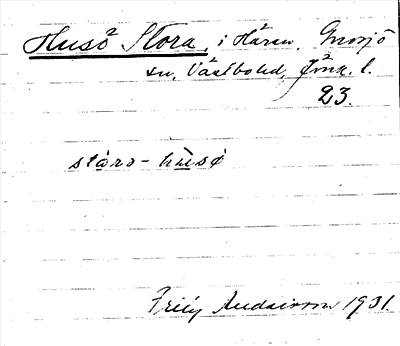 Husö Stora, i Hären, Gnosjö
sn, Västbo hd, Jönk. l.
23.
stóra - hùsö
Frejy Andersson 1931.